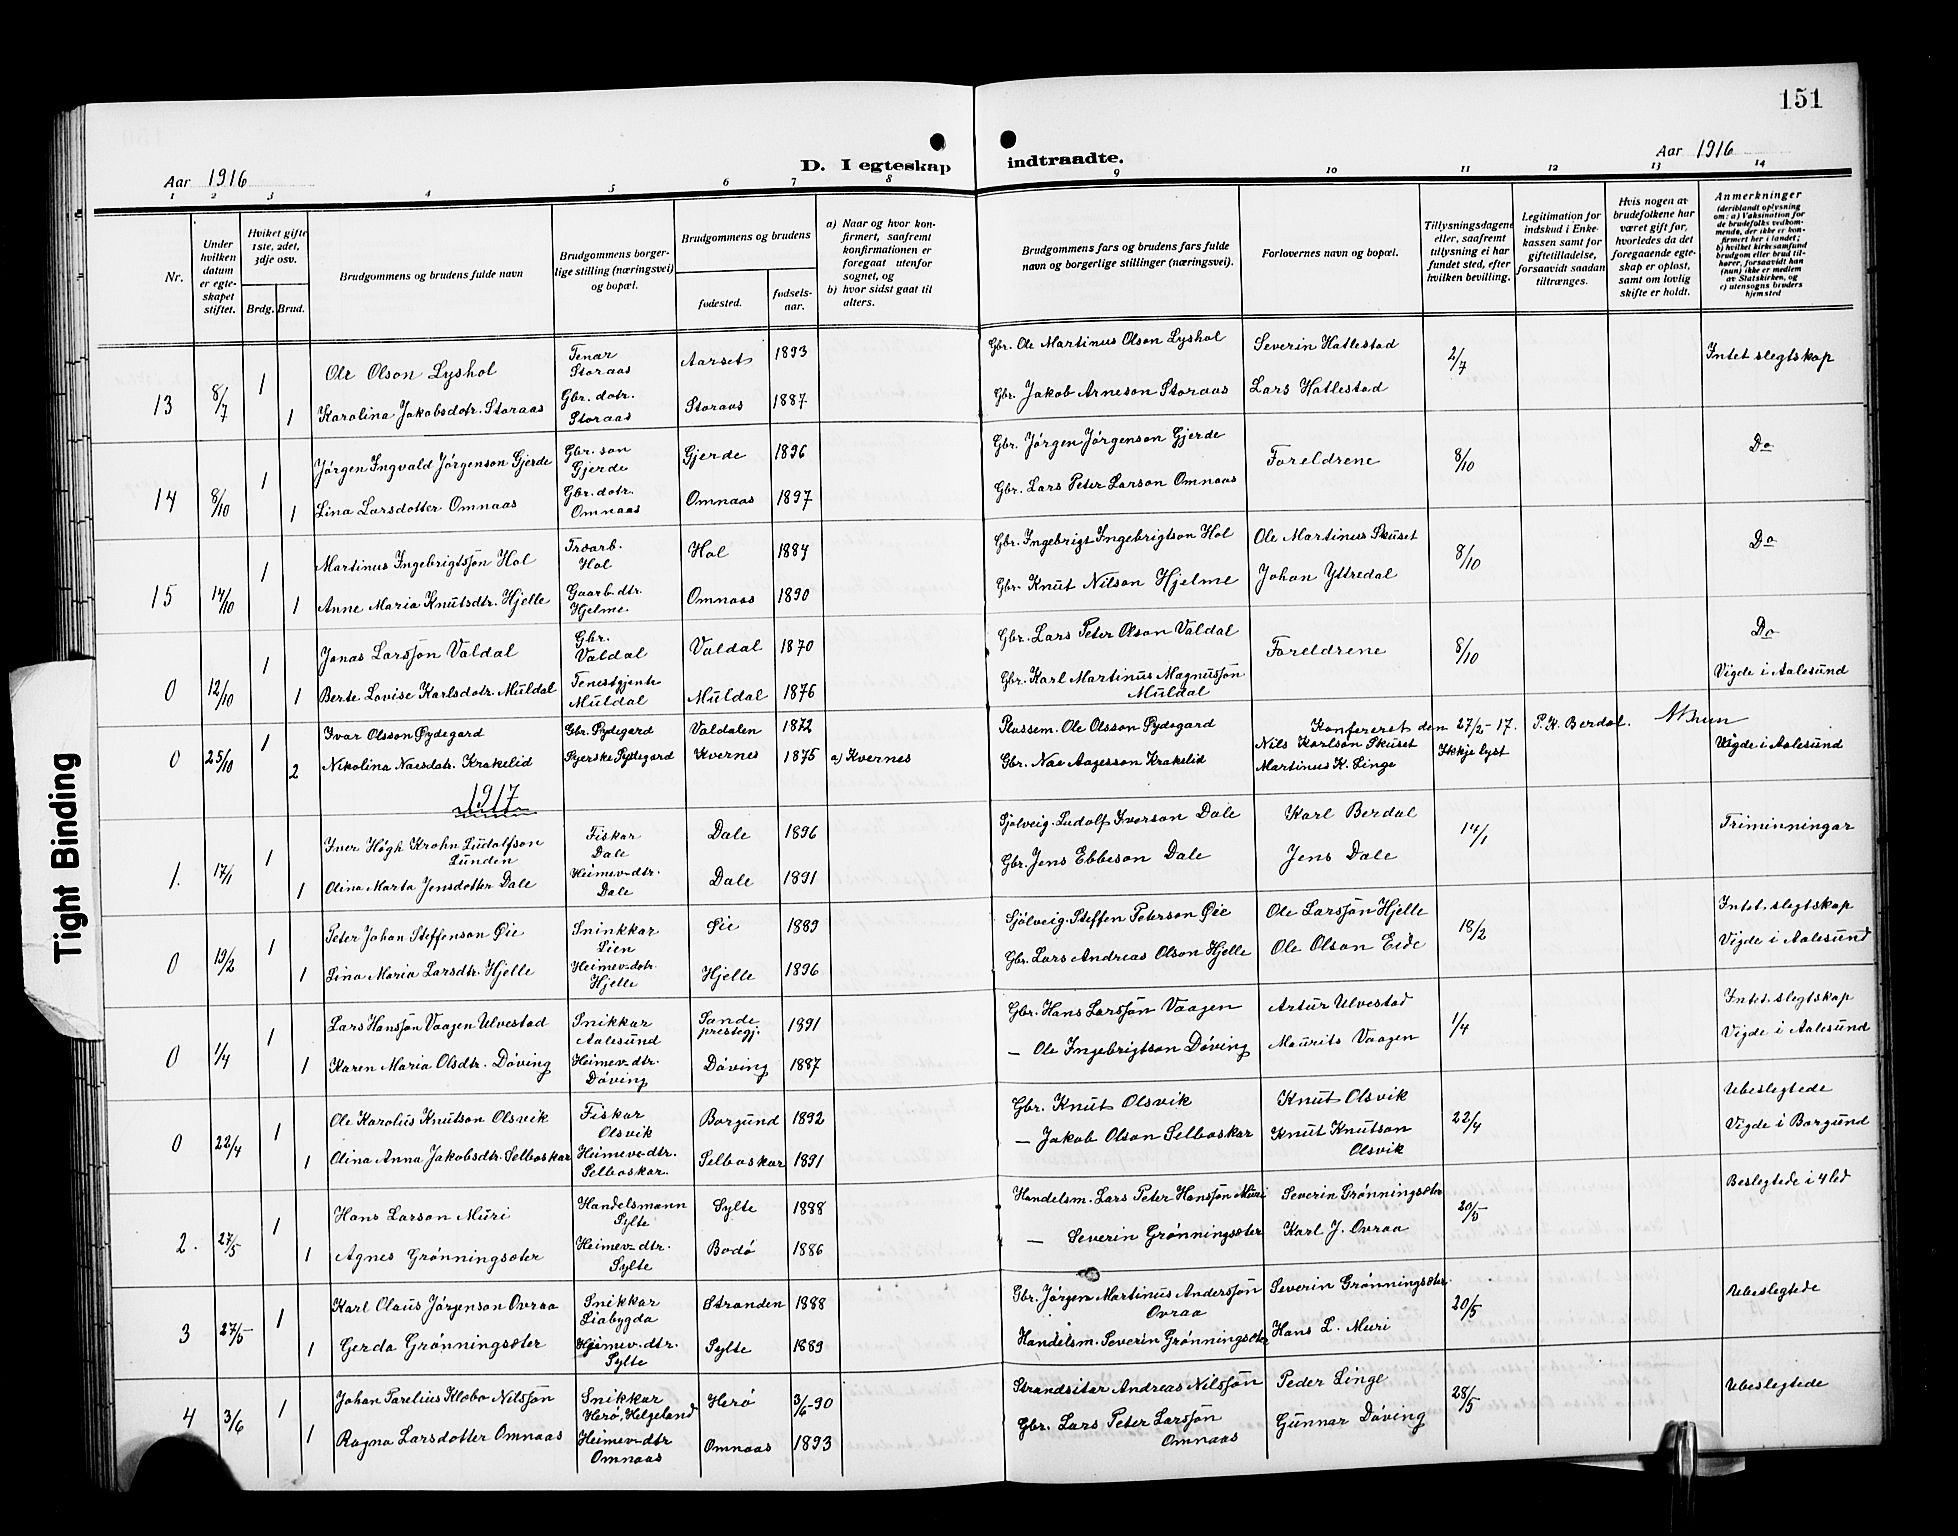 151
Aar 1916
D. I egteskap indtraadte.
Aar 1916
1 2 3 4 5 6 7 8 9 10 11 12 13 14
Nr.
Under hvilken datum er egteskapet stiftet.
Hviket gifte 1ste, 2det, 3dje osv.
Brdg. Brud.
Brudgommens og brudens fulde navn
Brudgommens borgerlige stilling (næringsvei) og bopæl.
Brudgommens og brudens
fødested.
fødselsaar.
a) Naar og hvor konfirmert, saafremt konfirmationen er foregaat utenfor sognet, og
b) hvor sidst gaat til alters.
Brudgommens fars og brudens fars fulde navn og borgerlige stillinger (næringsvei).
Forlovernes navn og bopæl.
Tillysningsdagene eller, saafremt tillysning ei har fundet sted, efter hvilken bevilling.
Legitimation for indskud i Enkekassen samt for giftetilladelse, forsaavidt saadan tiltrænges.
Hvis nogen av brudefolkene har været gift før, hvorledes da det foregaaende egteskap er opløst, samt om lovlig skifte er holdt.
Anmerkninger
(deriblandt oplysning om: a) Vaksination for de brudefolks vedkommende, der ikke er konfirmert her i landet; b) hvilket kirkesamfund brudgom eller brud tilhører, forsaavidt han (hun) ikke er medlem av Statskirken, og c) utensogns bruders hjemsted
13 8/7 1 Ole Olson Lyshol Tenar Storaas Aarset 1893 Gbr. Ole Martinus Olson Lyshol Severin Hatlestad 2/7 Intet slegtskap
1 Karolina Jakobsdotr. Storaas Gbr. dotr. Storaas Storaas 1887 Gbr. Jakob Arneson Storaas Lars Hatlestad
14 8/10 1 Jørgen Ingvald Jørgenson Gjerde Gbr. son Gjerde Gjerde 1896 Gbr. Jørgen Jørgenson Gjerde Foreldrene 8/10 Do
1 Lina Larsdotter Omnaas Gbr. dotr. Omnaas Omnaas 1897 Gbr. Lars Peter Larson Omnaas
15 14/10 1 Martinus Ingebrigtsson Hol Hol Hol 1884 Gbr. Ingebrigt Ingebrigtson Hol Ole Martinus Skuset 8/10 Do
1 Anne Maria Knutsdtr. Hjelle Gaarb. dtr. Hjelme Omnaas 1890 Gbr. Knut Nilson Hjelme Johan Yttredal
0 12/10 1 Jonas Larsson Valdal Gbr. Valdal Valdal 1870 Gbr. Lars Peter Olson Valdal Foreldrene 8/10 Do
1 Berte Lovise Karlsdotr. Muldal Tenestgjente Muldal Muldal 1876 Gbr. Karl Martinus Magnusson Muldal Vigde i Aalesund
0 25/10 1 Ivar Olsson Øydegard Gbr. Øydegard Valdalen 1872 Plassem. Ole Olsson Øydegard Konfereret den 27/2-17. P. K. Berdal.
2 Nikolina Naesdatr. Krakelid Syerske Øydegard Kvernes 1875 a) Kvernes Gbr. Nae Aagesson Krakelid Nils Karlson Skuset Martinus K. Linge Ikkje lyst Vigde i Aalesund
1917
1. 17/1 1 Iver Høgh Krohn Ludolfson Lunden Fiskar Dale Dale 1896 Sjølveig. Ludolf Ivarson Dale Karl Berdal 14/1 Triminningar
1 Olina Marta Jensdotter Dale Heimev-dtr. Dale Dale 1891 Gbr. Jens Ebbeson Dale Jens Dale
0 19/2 1 Peter Johan Steffenson Øie Sninkkar Lien Øie 1889 Sjølveig. Steffen Peterson Øie Ole Larsson Hjelle 18/2 Intet slegtskap
1 Lina Maria Larsdtr. Hjelle Heimev-dotr. Hjelle Hjelle 1896 Gbr. Lars Andreas Olson Hjelle Ole Olson Eide Vigde i Aalesund
0 1/4 1 Lars Hansson Vaagen Ulvestad Snikkar Aalesund Sande prestegj. 1891 Gbr. Hans Larsson Vaagen Artur Ulvestad 1/4 Intet slegtskap
1 Karen Maria Olsdtr. Døving Heimev-dtr. Døving Døving 1887 — Ole Ingebrigtson Døving Maurits Vaagen Vigde i Aalesund
0 22/4 1 Ole Karolius Knutson Olsvik Fiskar Olsvik Borgund 1892 Gbr. Knut Olsvik Knut Olsvik 22/4 Ubeslegtede
1 Olina Anna Jakobsdtr. Selboskar Heimev-dtr. Selboskar Selboskar 1891 — Jakob Olson Selboskar Knut Knutson Olsvik Vigde i Borgund
2. 27/5 1 Hans Larson Muri Handelsmann Sylte Sylte 1888 Handelsm. Lars Peter Hansson Muri Severin Grønningsæter 20/5 Beslegtede i 4 led
1 Agnes Grønningsæter Heimev-dtr. Sylte Bodø 1886 — Severin Grønningsæter Karl J. Ovraa
3 27/5 1 Karl Olaus Jørgenson Ovraa Snikkar Liabygda Stranden 1888 Gbr. Jørgen Martinus Andersson Ovraa Severin Grønningsæter 20/5 Ubeslegtede
1 Gerda Grønningsæter Heimev-dtr. Sylte Sylte 1889 Handelsm. Severin Grønningsæter Hans L. Muri
4 3/6 1 Johan Parelius Klæbo Nilsson Snikkar Herø, Helgeland Herø 3/6-90 Strandsitar Andreas Nilsson Peder Linge 28/5 Ubeslegtede
1 Ragna Larsdotter Omnaas Heimev-dtr Omnaas Omnaas 1893 Gbr. Lars Peter Larsson Omnaas Gunnar Døving
Tight Binding